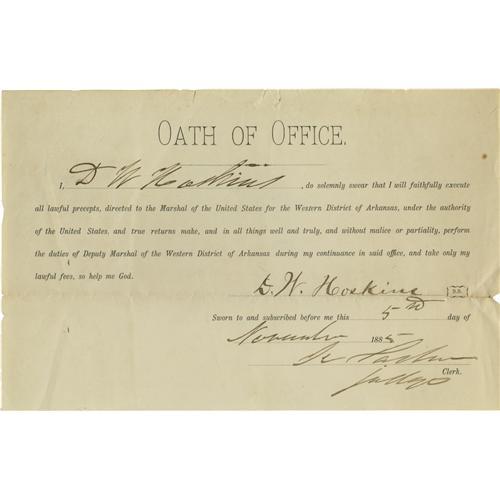 OATH OF OFFICE.
I, D W Hoskins, do solemnly swear that I will faithfully execute
all lawful precepts, directed to the Marshal of the United States for the Western District of Arkansas, under the authority
of the United States, and true returns make, and in all things well and truly, and without malice or partiality, perform
the duties of Deputy Marshal of the Western District of Arkansas during my continuance in said office, and take only my
lawful fees, so help me God.
D. W. Hoskins
Sworn to and subscribed before me this 5th day of
November 1885
Parker
Judge
Clerk.